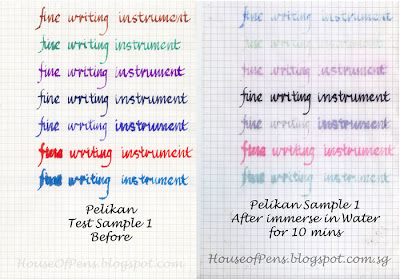 fine writing instrument
fine writing instrument
fine writing instrument
fine writing instrument
fine writing instrument
fine writing instrument
fine writing instrument
Pelikan
Test Sample 1
Before
HouseofPens.blogspot.com
fine writing instrument
fine writing instrument
fine writing instrument
fine writing instrument
fine writing instrument
fine writing instrument
fine writing instrument
Pelikan Sample 1
After immerse in Water
for 10 mins
HouseofPens.blogspot.com.sg